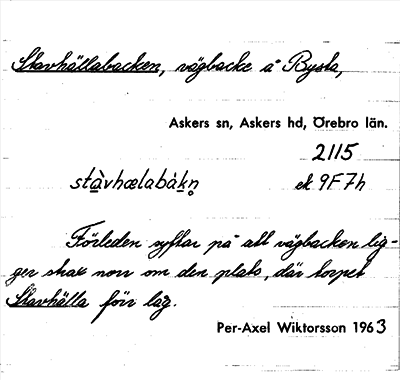 Stavhällabacken, vägbacke å Bysta,
Askers sn, Askers hd, Örebro län.
2115
stàvhœlabàkn̥ ek 9F7h
Förleden syftar på att vägbacken lig-
ger strax norr om den plats, där torpet
Stavhälla förr låg.
Per-Axel Wiktorsson 1963